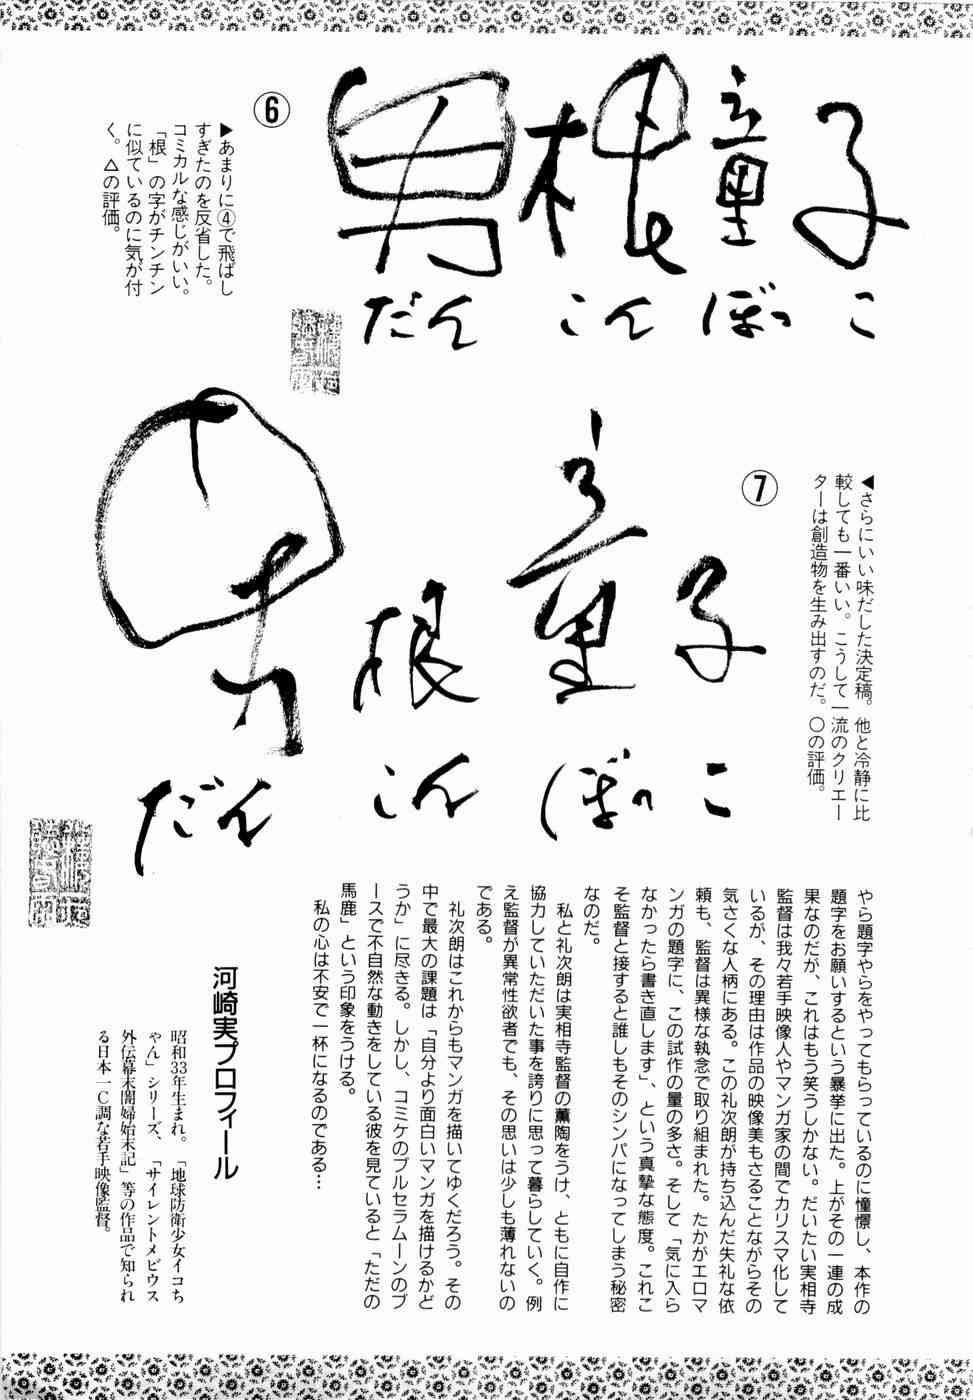 男根童子
だんこんぼっこ
⑥
▶あまりに④で飛ばし
すぎたのを反省した。
コミカルな感じがいい。
「根」の字がチンチン
に似ているのに気が付
く。△の評価。
男根童子
だんこんぼっこ
⑦
◀さらにいい味だした決定稿。他と冷静に比
較しても一番いい。こうして一流のクリエー
ターは創造物を生み出すのだ。〇の評価。
やら題字やらをやってもらっているのに憧憬し、本作の
題字をお願いするという暴挙に出た。上がその一連の成
果なのだが、これはもう笑うしかない。だいたい実相寺
監督は我々若手映像人やマンガ家の間でカリスマ化して
いるが、その理由は作品の映像美もさることながらその
気さくな人柄にある。この礼次朗が持ち込んだ失礼な依
頼も、監督は異様な執念で取り組まれた。たかがエロマ
ンガの題字に、この試作の量の多さ。そして「気に入ら
なかったら書き直します」、という真摯な態度。これこ
そ監督と接すると誰しもそのシンパになってしまう秘密
なのだ。
私と礼次朗は実相寺監督の薫陶をうけ、ともに自作に
協力していただいた事を誇りに思って暮らしていく。例
え監督が異常性欲者でも、その思いは少しも薄れないの
である。
礼次朗はこれからもマンガを描いてゆくだろう。その
中で最大の課題は「自分より面白いマンガを描けるかど
うか」に尽きる。しかし、コミケのブルセラムーンのブ
ースで不自然な動きをしている彼を見ていると「ただの
馬鹿」という印象をうける。
私の心は不安で一杯になるのである…
河崎実プロフィール
昭和33年生まれ。「地球防衛少女イコち
ゃん」シリーズ、「サイレントメビウス
外伝幕末闇婦始末記」等の作品で知られ
る日本一C調な若手映像監督。